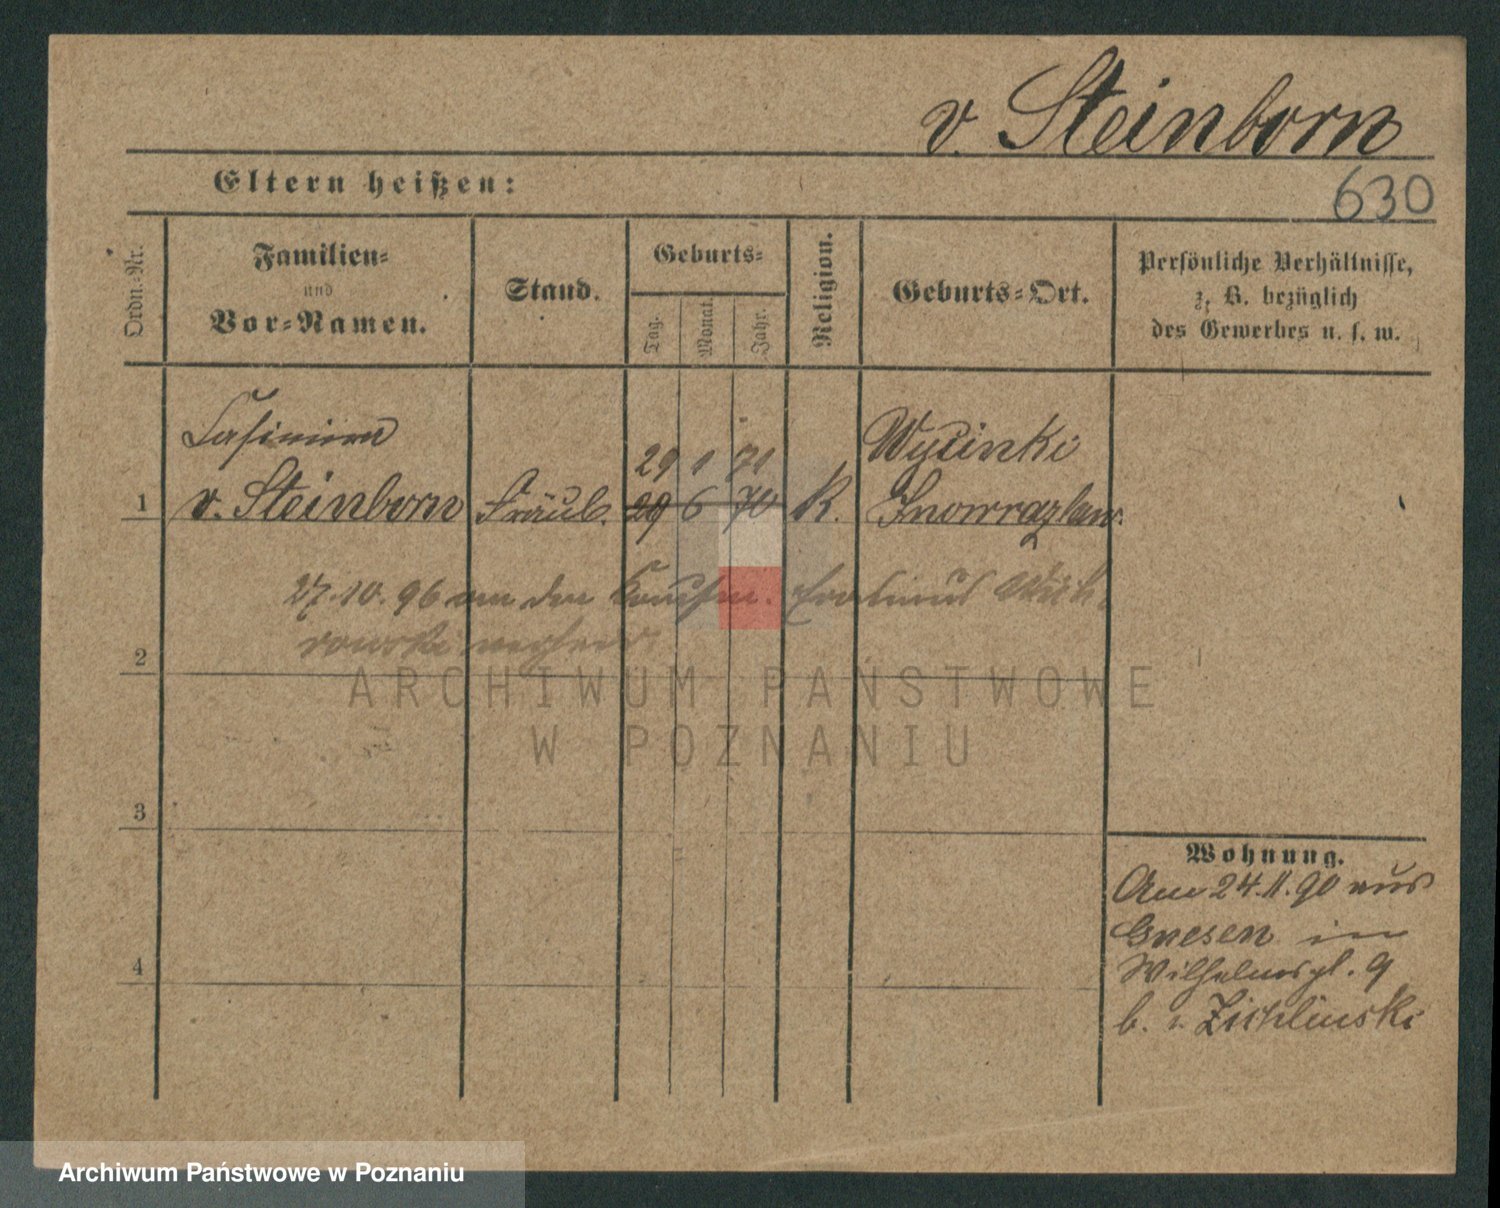 v. Steinborn
Eltern heißen:
630
Ordn.-Nr.
Familien-
und
Vor-Namen.
Stand.
Geburts-
Tag.
Monat.
Jahr.
Religion.
Geburts-Ort.
Persönliche Verhältnisse,
z. B. bezüglich
des Gewerbes u. s. w.
Casimira
29 1 71
1 v. Steinborn Fräul. 29 6 70 K. Inowrazlaw.
27.10.96 an den Kaufm.
2
ARCHIWUM PAŃSTWOWE
W POZNANIU
3
Wohnung.
Am 24.11.90 aus
Gnesen in
4
Wilhelmspl. 9
b. v. Zichlinski
Archiwum Państwowe w Poznaniu